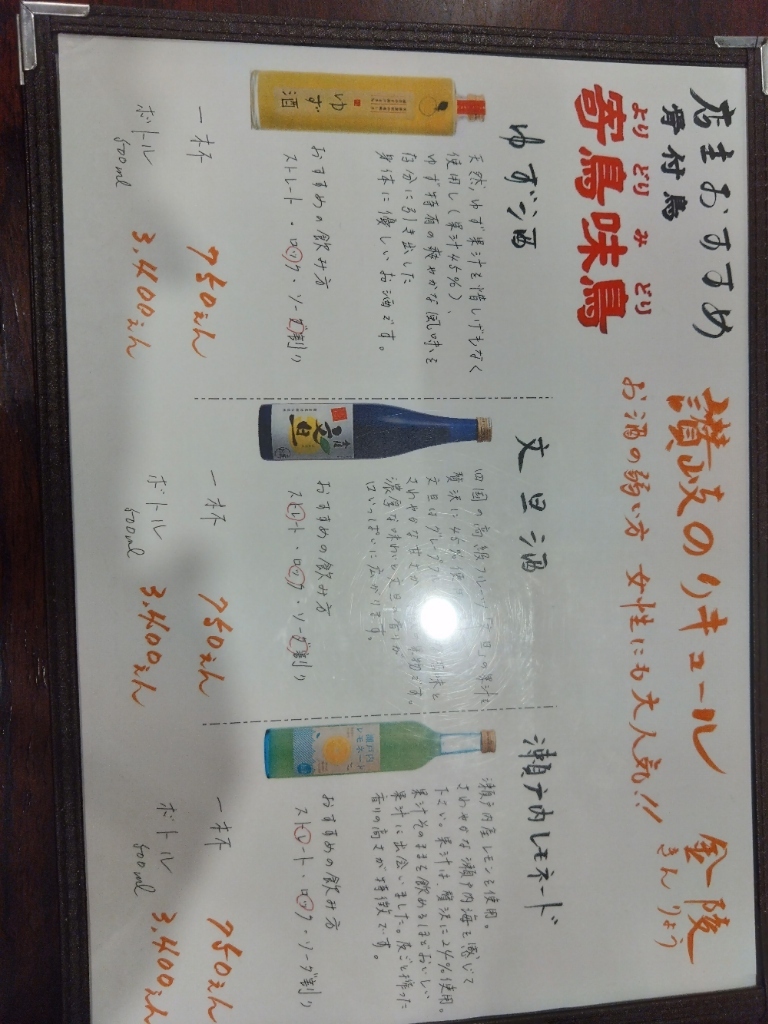 店主おすすめ
骨付鳥
よりどりみどり
寄鳥味鳥
讃岐のリキュール
金陵
きんりょう
お酒の弱い方 女性にも大人気!!
ゆず酒
天然ゆず果汁を惜しげもなく
使用し(果汁45%)、
ゆず特有の爽やかな風味を
存分に引き出した
身体に優しいお酒です。
ゆず酒
おすすめの飲み方
ストレート・ロック・ソーダ割り
一杯 750えん
ボトル 500ml 3,400えん
文旦酒
四国の高級フルーツ「文旦」の果汁を
贅沢に45%使用
文旦はグレープフ
さわやかな甘さ
濃厚な味わいと文旦の香りが
口いっぱいに広がります。
文旦
おすすめの飲み方
ストレート・ロック・ソーダ割り
一杯 750えん
ボトル 500ml 3,400えん
瀬戸内レモネード
瀬戸内産レモンを使用。
さわやかな瀬戸内海を感じて
下さい。果汁は、贅沢に24%使用。
果汁そのままを飲めるほどおいしい
果汁に出会いました。皮ごと搾った
香りの高さが特徴です。
瀬戸内
レモネード
おすすめの飲み方
ストレート・ロック・ソーダ割り
一杯 750えん
ボトル 500ml 3,400えん